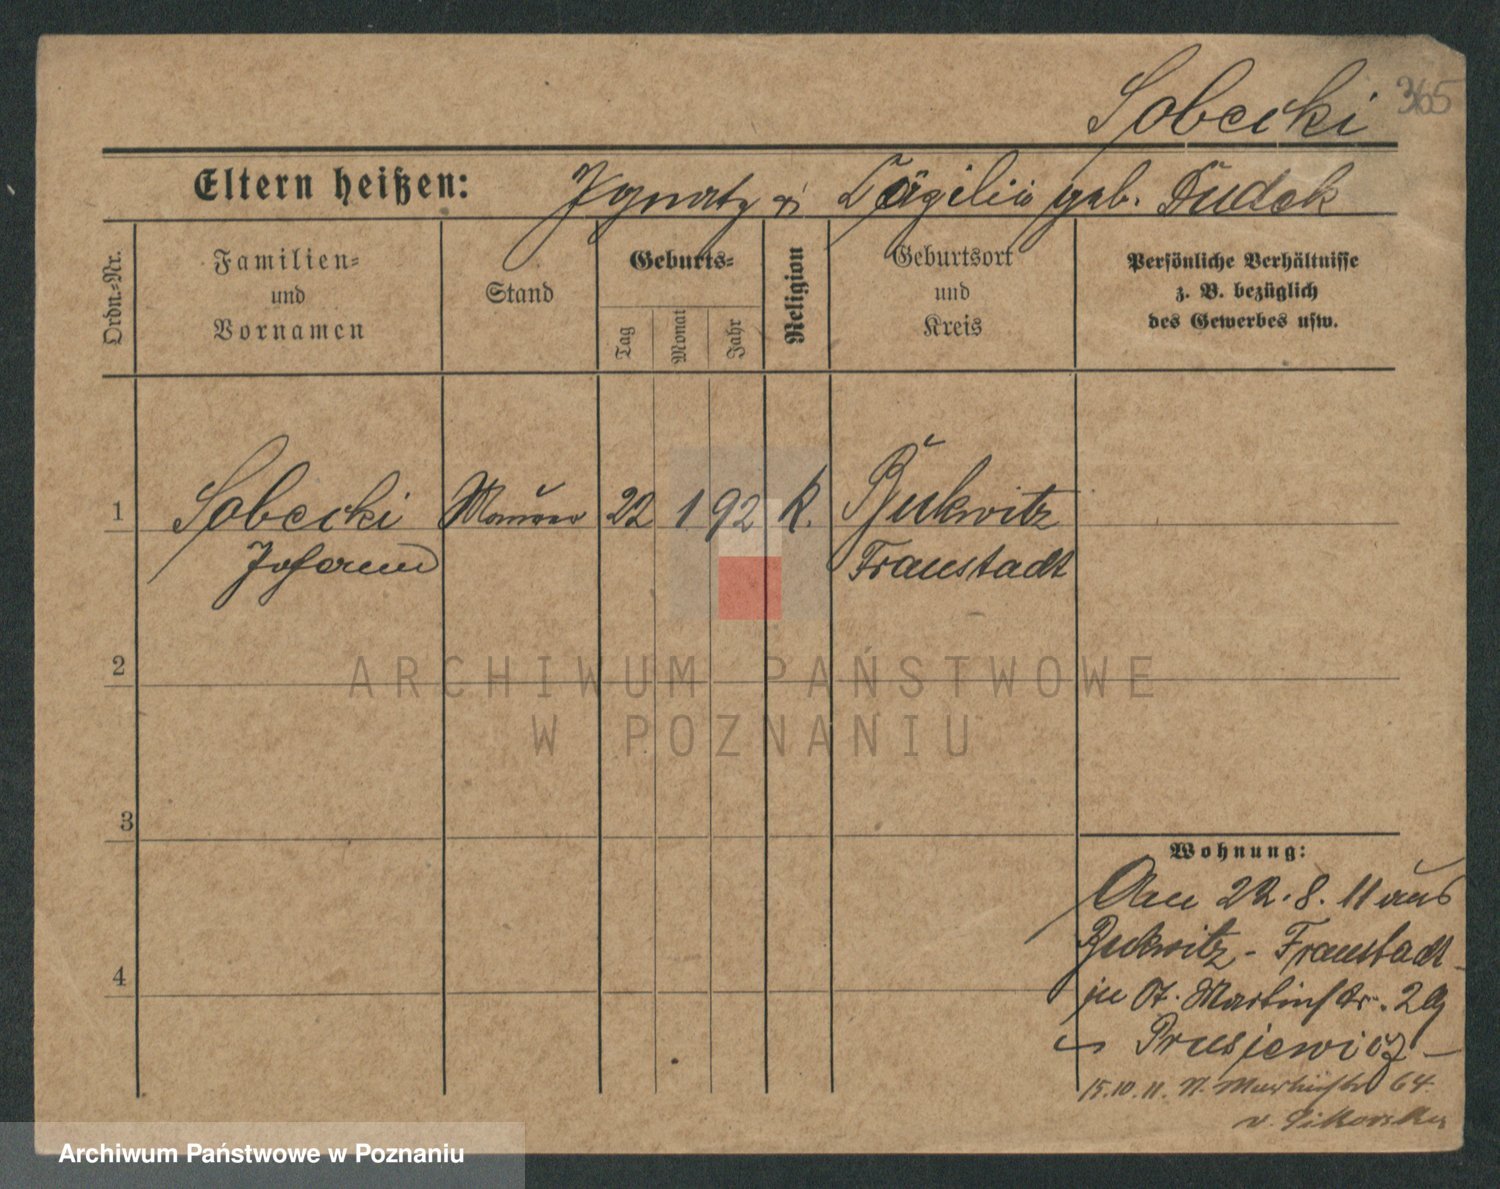 Sobecki 365
Eltern heißen: Ignatz & Cäzilia geb. Dudek
Ordn.-Nr.
Familien- und Vornamen
Stand
Geburts-
Tag
Monat
Jahr
Religion
Geburtsort und Kreis
Persönliche Verhältnisse
z. B. bezüglich
des Gewerbes usw.
1 Sobecki Maurer 22 1 92 K. Bukwitz
Johann Fraustadt
2
3
4
ARCHIWUM PAŃSTWOWE
W POZNANIU
Wohnung:
22.8.11 aus
Bukwitz - Fraustadt
St. Martinstr. 29
Prusiewicz
15.10.11. Martinstr 64.
v. Sikorska
Archiwum Państwowe w Poznaniu